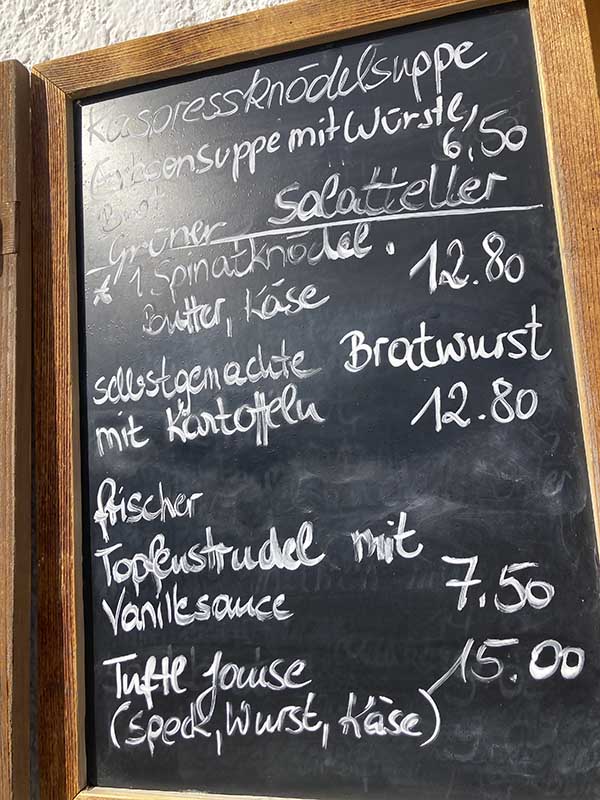 Kaspressknödelsuppe
Erbsensuppe mit Würstl,
6,50
Brot
Grüner Salatteller
1 Spinatknödel.
12.80
Butter, Käse
selbstgemachte Bratwurst
mit Kartoffeln 12.80
frischer
Topfenstrudel mit
Vanillesauce 7.50
Tuftl Jause 15.00
(Speck, Wurst, Käse)